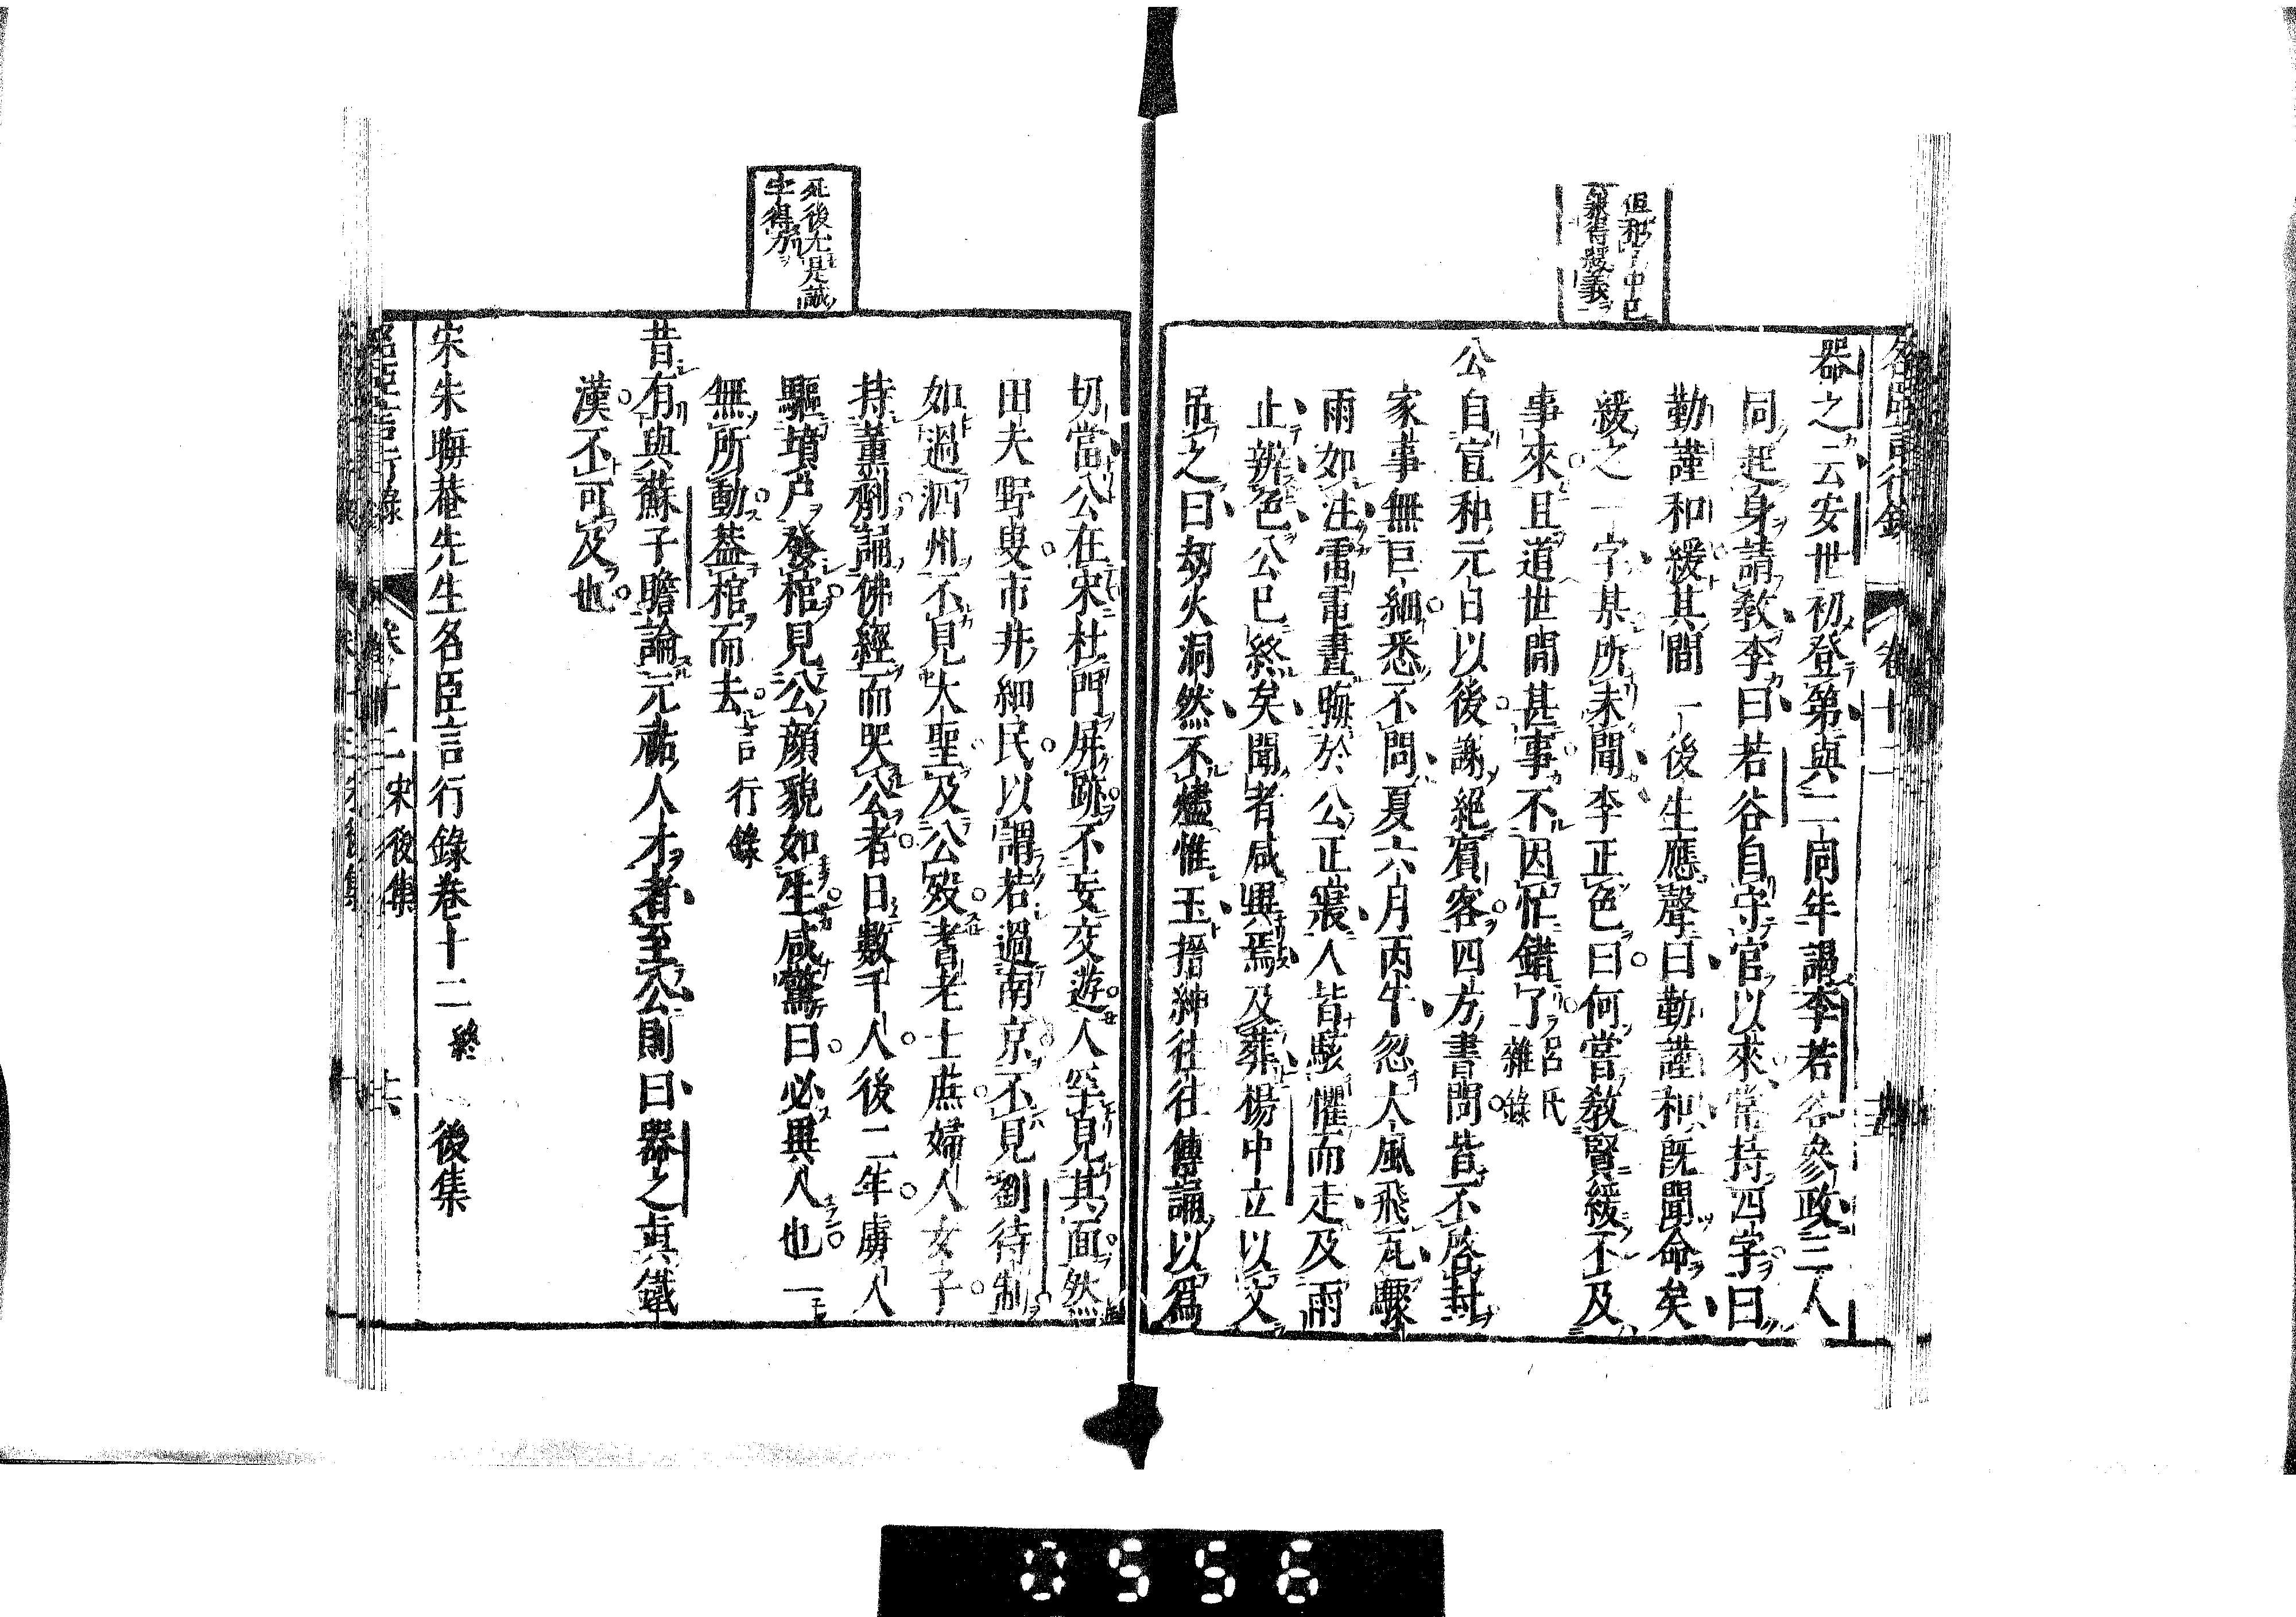 名臣言行錄
卷十二
但和了中已
器之云安世初登第與二同年謁李若谷參政三人
同起身請敎李曰若谷自守官以來常持四字曰
勤謹和緩其間一後生應聲曰勤謹和旣聞命矣
緩之一字某所未聞李正色曰何嘗敎賢緩不及
事來且道世間甚事不因忙錯了呂氏
雜錄
公自宣和元日以後謝絕賓客四方書問皆不啓封
家事無巨細悉不問夏六月丙午忽大風飛瓦驟
雨如注雷電晝晦於公正寢人皆駭懼而走及雨
止辨色公已終矣聞者咸異焉及葬楊中立以文
吊之曰刼火洞然不燼惟玉搢紳往往傳誦以爲
死後尤是誠
字得力
切當公在宋杜門屏跡不妄交遊人罕見其面然
田夫野叟市井細民以謂若過南京不見劉待制
如過泗州不見大聖及公歿耆老士庶婦人女子
持薰劑誦佛經而哭公者日數千人後二年虜人
驅墳戶發棺見公顏貌如生咸驚曰必異人也一
無所動葢棺而去言行錄
昔有與蘇子瞻論元祐人才者至公則曰器之眞鐵
漢不可及也
宋朱晦菴先生名臣言行錄卷十二終 後集
名臣言行錄
卷十二宋後集
0556